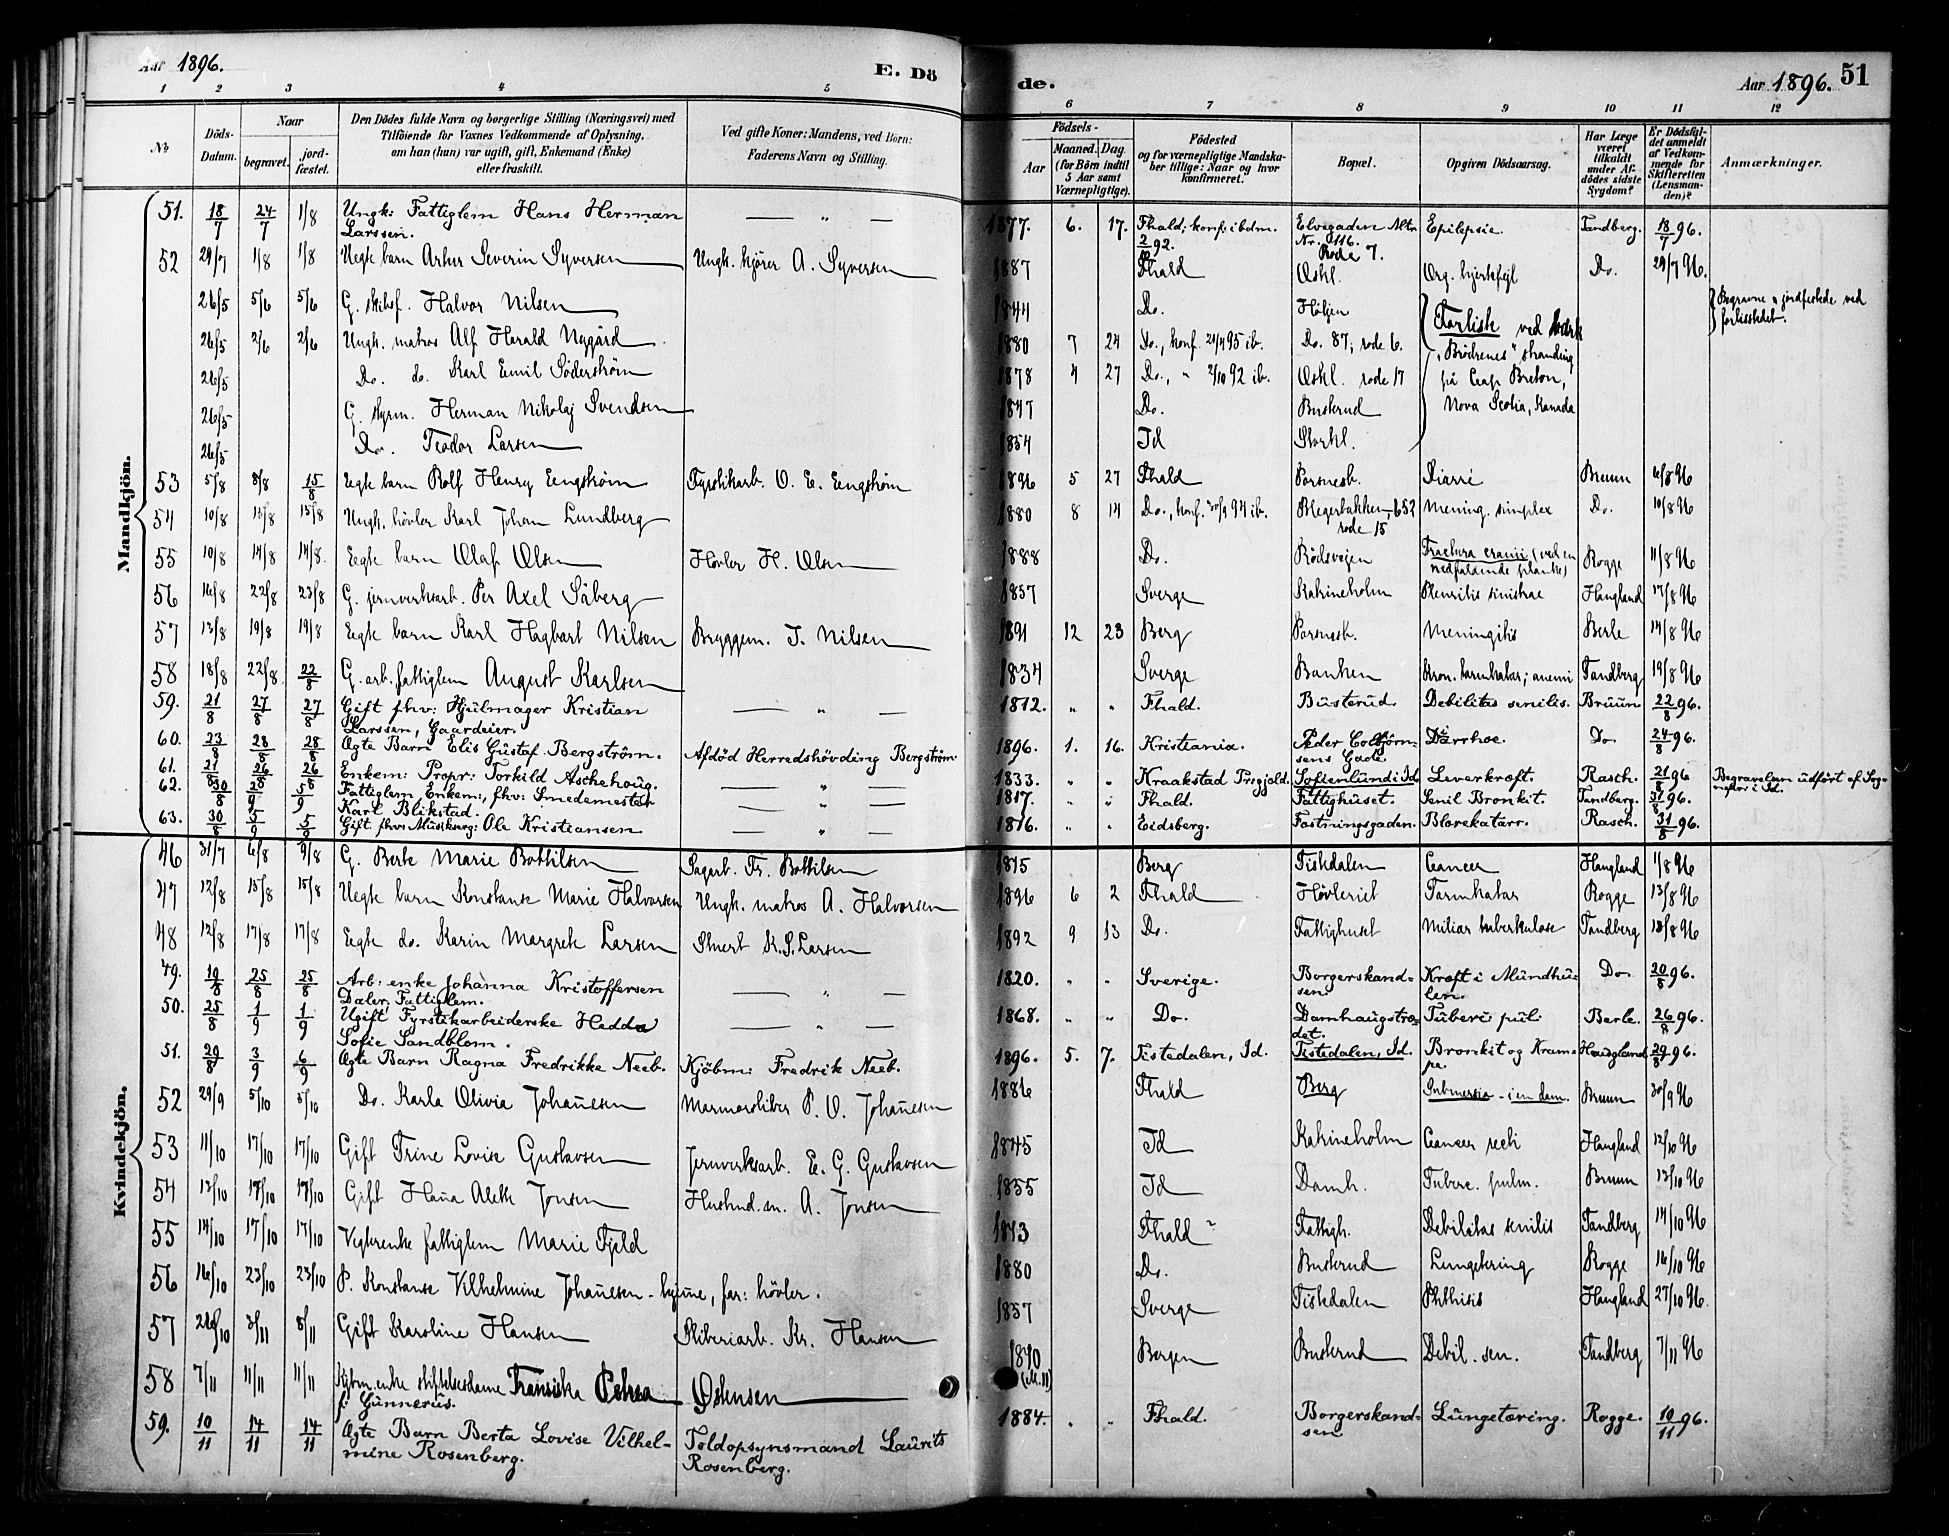 Aar 1896. E. Dö
de. Aar 1896. 51
1 2 3 4 5 6 7 8 9 10 11 12
No Döds-Datum. Naar begravet. jord-fæstet. Den Dödes fulde Navn og borgerlige Stilling (Næringsvei) med Tilföiende for Voxnes Vedkommende af Oplysning, om han (hun) var ugift, gift, Enkemand (Enke) eller fraskilt. Ved gifte Koner: Mandens, ved Börn: Faderens Navn og Stilling.
Födsels- Aar Maaned. Dag. (for Börn indtil 5 Aar samt Værnepligtige). Födested og for værnepligtige Mandska-ber tillige: Naar og hvor konfirmeret. Bopæl. Opgiven Dödsaarsag. Har Læge været tilkaldt under Af-dödes sidste Sygdom? Er Dödsfal-det anmeldt af Vedkom-mende for Skifteretten (Lensman-den)? Anmærkninger.
Mandkjön.
51. 18/7 24/7 1/8 Ungk: Fattiglem Hans Herman Larssen. — " — 1877. 6. 17. Fhald; konf: ibdm. 2/10 92. Elvegaden Nr. 116. Rode 7. Epilepsie. Tandberg. 18/7 96.
52 29/7 1/8 1/8 Uegte barn Artur Severin Syversen Ungk. kjörer A. Syversen 1887 Fhald Oskl. Org. hjertefejl Do. 29/7 96.
26/5 5/6 5/6 G. skibsf. Halvor Nilsen 1844 Do. Höljen Forlist ved bark Begravne o jordfestede ved forlisstedet.
26/5 2/6 2/6 Ungk. matros Alf Harald Nygård 1880 7 24 Do., konf. 21/4 95 ib. Do. 87; rode 6. "Brödrenes" stranding
26/5 Do. do. Karl Emil Söderström 1878 4 27 Do., " 2/10 92 ib. Oskl. rode 17 på Cap Breton,
26/5 G. styrm. Herman Nikolaj Svendsen 1847 Do. Busterud Nova Scotia, Kanada
26/5 Do. Teodor Larsen 1854 Id Storkl.
53 5/8 8/8 15/8 Egte barn Rolf Henry Engström Fyrstikarb. O. E. Engström 1896 5 27 Fhald Porsnesb. Diarré Bruun 6/8 96
54 10/8 15/8 15/8 Ungk. hövler Karl Johan Lundberg 1880 8 14 Do., konf. 30/9 94 ib. Blegerbakken, 652 rode 15 Mening. simplex Do. 10/8 96
55 10/8 14/8 14/8. Egte barn Olaf Olsen Hövler H. Olsen 1888 Do. Rödsvejen Fractura cranii (ved en nedfaldende planke) Rogge 11/8 96
56 16/8 22/8 23/8 G. jernverksarb. Per Axel Såberg 1857 Sverge Katrineholm Pleuritis sinistrae Haugland 17/8 96
57 13/8 19/8 19/8 Egte barn Karl Hagbart Nilsen Bryggem. J. Nilsen 1891 12 23 Berg Porsnesb. Meningitis Berle 14/8 96
58 18/8 22/8 22/8 G. arb. fattiglem August Karlsen 1834 Sverge Banken Kron. tarmkatar; anemi Tandberg 19/8 96
59. 21/8 27/8 27/8 Gift fhv: Hjulmager Kristian Larssen, Gaardeier. — " — 1812. " " Fhald. Busterud. Debilitas senilis. Bruun 22/8 96.
60. 23/8 28/8 28/8 Ægte Barn Elis Gustaf Bergström. Afdød Herredshövding Bergström 1896. 1. 16. Kristiania. Peder Colbjörn-sens Gade. Diarrhoe. Do 24/8 96.
61. 21/8 26/8 26/8 Enkem: Propr: Torkild Aschehoug. — " — 1833. " " Kraakstad Prgjeld. Sofienlund i Id. Leverkræft. Rasch. 21/8 96 Begravelsen udfört af Sog-neprest i Id.
62. 30/8 5/9 Fattiglem, Enkem:, fhv: Smedemester Karl Blikstad. — " — 1817. " " Fhald. Fattighuset. Senil Bronkit. Tandberg. 31/8 96.
63. 30/8 5/9 5/9 Gift fhv: Musikserg: Ole Kristiansen — " — 1816. " " Eidsberg. Fæstningsgaden. Blærekatarr. Rasch. 31/8 96.
Kvindekjön.
46 31/7 6/8 9/8 G. Berte Marie Bottilsen Sagarb. Fr. Bottilsen 1815 Berg Tistedalen Cancer Haugland 1/8 96
47 12/8 15/8 15/8 Uegte barn Konstanse Marie Halvorsen Ungk. matros A. Halvorsen 1896 6 2 Fhald Hövleriet Tarmkatar Rogge 13/8 96
48 12/8 17/8 17/8 Egte do. Karin Margrete Larsen Smert K. S. Larsen 1892 9 13 Do. Fattighuset Miliær tuberkulose Tandberg 13/8 96
49. 19/8 25/8 25/8 Arb: enke Johanna Kristoffersen Daler, Fattiglem. — " — 1820. " " Sverige. Borgerskand-sen. Kræft i Mundhu-len. Do 20/8 96.
50. 25/8 1/9 1/9 Ugift Fyrstikarbeiderske Hedda Sofie Sandblom. — " — 1868. " " Do. Damhaugstræ-det. Tuberc: pul: Berle. 26/8 96.
51. 29/8 3/9 6/9 Ægte Barn Ragna Fredrikke Neeb. Kjöbm: Fredrik Neeb. 1896. 5. 7. Tistedalen, Id. Tistedalen, Id. Bronkit og Kram-pe. Haugland. 29/8 96.
52 29/9 5/10 5/10 Do. Karla Olivia Johañesen Marmorsliber P. O. Johañesen 1886 Fhald Berg Submersio - i en dam. Bruun 30/9 96
53 11/10 17/10 17/10 Gift Trine Lovise Gustavsen Jernverksarb. E. G. Gustavsen 1845 Id Katrineholm Cancer recti Haugland 12/10 96
54 13/10 18/10 18/10 Gift Haña Alette Jonsen Husbud.m. A. Jonsen 1855 Id Damh. Tuberc. pulm. Bruun 13/10 96
55 14/10 17/10 17/10 Vegterenke fattiglem Marie Fjeld 1813 Fhald Fattigh. Debilitas senilis Tandberg 14/10 96
56 16/10 23/10 23/10 P. Konstanse Vilhelmine Johañesen - hjeme, far: hövler. 1880 Do. Busterud Lungetering Rogge 16/10 96
57 26/10 3/11 8/11 Gift Karoline Hansen Sliberiarb. Kr. Hansen 1857 Sverge Tistedalen Phthisis Haugland 27/10 96.
58 7/11 11/11 11/11 Kjöbm. enke stiftelsesdame Fransiska Petrea Ostensen f: Gunnerus. 1810 (M. 11) Bergen Busterud Debil. sen. Tandberg 7/11 96
59. 10/11 14/11 14/11 Ægte Barn Berta Lovise Vilhel-mine Rosenberg. Toldopsynsmand Laurits Rosenberg. 1884. " " Fhald. Borgerskand-sen Lungetæring. Rogge. 10/11 96.